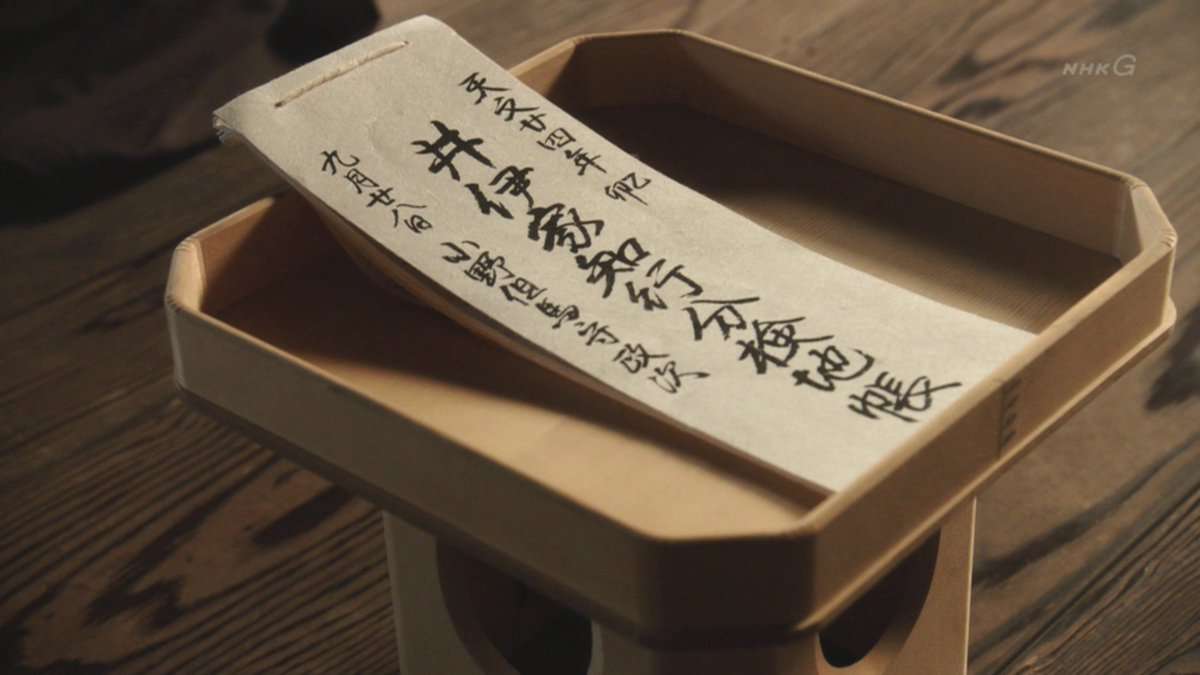 天文廿四年卯
井伊家知行分検地帳
九月廿八日
小野但馬守政次
NHK G